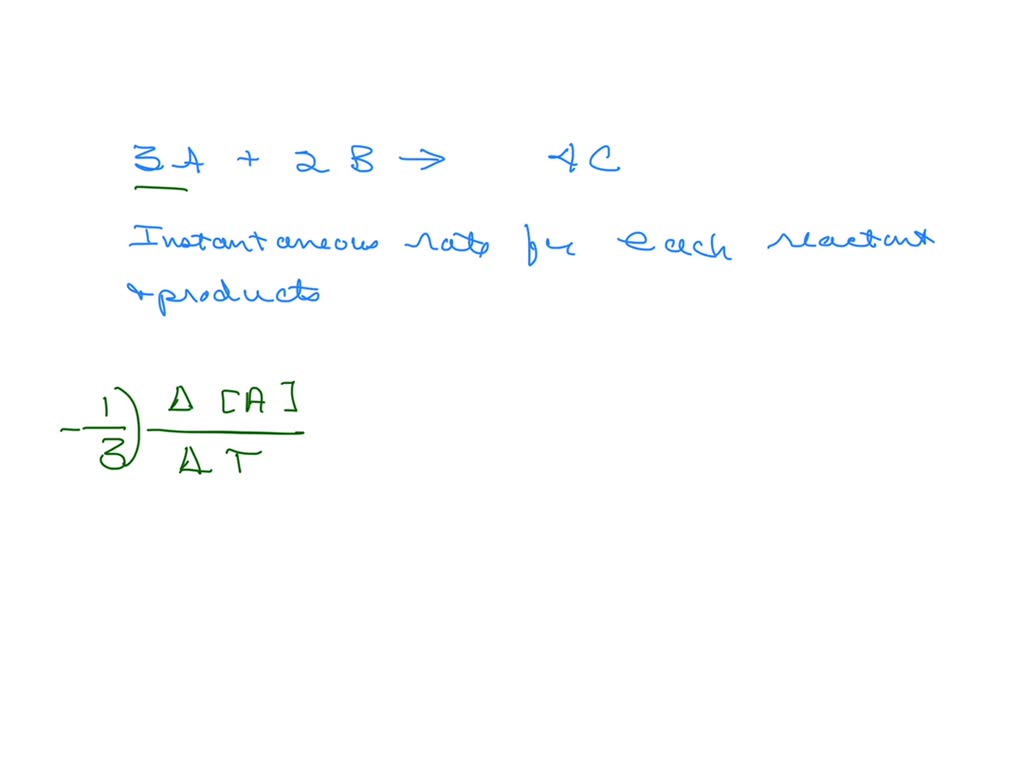 3A + 2B → 4C
Instantaneous rate for each reactant
+ products
- 1/3) Δ[A]/ΔT